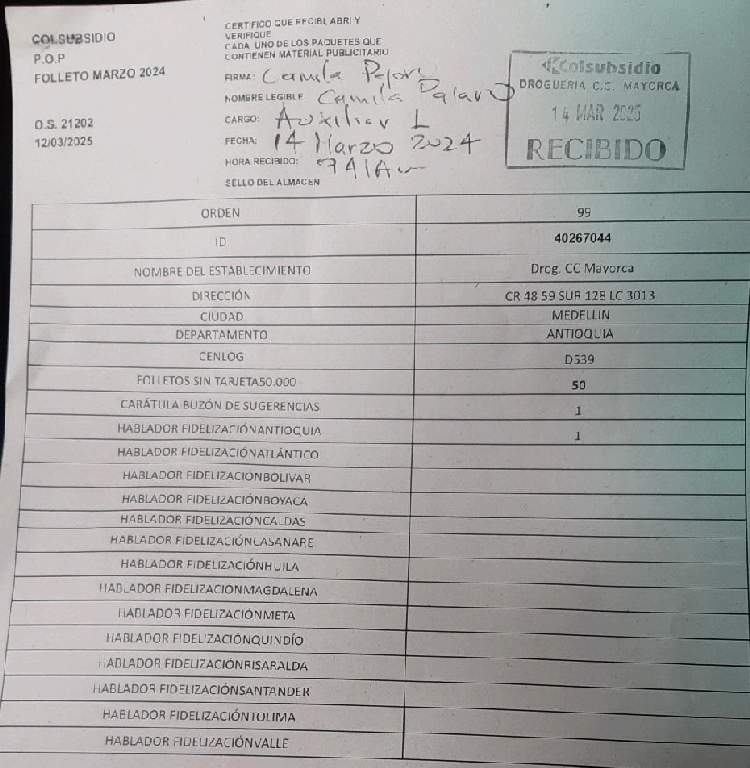 COLSUBSIDIO
P.O.P
FOLLETO MARZO 2024
O.S. 21202
12/03/2025
CERTIFICO QUE RECIBI, ABRI Y
VERIFIQUE
CADA UNO DE LOS PAQUETES QUE
CONTIENEN MATERIAL PUBLICITARIO
FIRMA: Camila
NOMBRE LEGIBLE Camila
CARGO: Auxiliar L
FECHA: 14 Marzo 2024
HORA RECIBIDO:
SELLO DEL ALMACEN
Colsubsidio
DROGUERIA C.C. MAYORCA
14 MAR 2025
RECIBIDO
ORDEN 99
ID 40267044
NOMBRE DEL ESTABLECIMIENTO Drog. CC Mayorca
DIRECCIÓN CR 48 59 SUR 128 LC 3013
CIUDAD MEDELLIN
DEPARTAMENTO ANTIOQUIA
CENLOG D539
FOLLETOS SIN TARJETA50.000 50
CARÁTULA BUZÓN DE SUGERENCIAS 1
HABLADOR FIDELIZACIÓNANTIOQUIA 1
HABLADOR FIDELIZACIÓNATLÁNTICO
HABLADOR FIDELIZACIÓNBOLIVAR
HABLADOR FIDELIZACIÓNBOYACA
HABLADOR FIDELIZACIÓNCALDAS
HABLADOR FIDELIZACIÓNCASANARE
HABLADOR FIDELIZACIÓNHUILA
HABLADOR FIDELIZACIÓNMAGDALENA
HABLADOR FIDELIZACIÓNMETA
HABLADOR FIDELIZACIÓNQUINDÍO
HABLADOR FIDELIZACIÓNRISARALDA
HABLADOR FIDELIZACIÓNSANTANDER
HABLADOR FIDELIZACIÓNTOLIMA
HABLADOR FIDELIZACIÓNVALLE